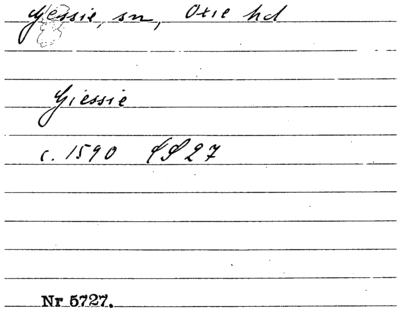 Gessie, sn, Oxie hd
Giessie
c. 1590 SS 27
Nr 5727.